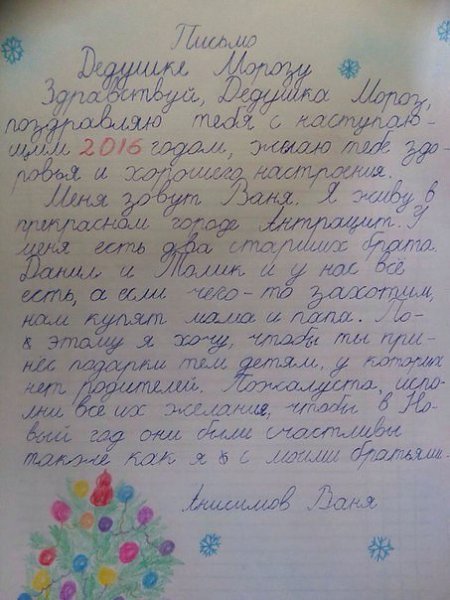 Письмо
Дедушке Морозу
Здравствуй, Дедушка Мороз,
поздравляю тебя с наступаю-
щим 2016 годом, жылаю тебе здо-
ровья и хорошего настроения.
Меня зовут Ваня. Я живу в
прекрасном городе Антрацит. У
меня есть два старших брата.
Данил и Толик и у нас всё
есть, а если чего-то захотим,
нам купят мама и папа. По-
этому я хочу, чтобы ты при-
нёс подарки тем детям, у которих
нет родителей. Пожалуста, испо-
лни все их желания, чтобы в Но-
вый год они были счастливы
также как я с моими братьями.
Анисимов Ваня